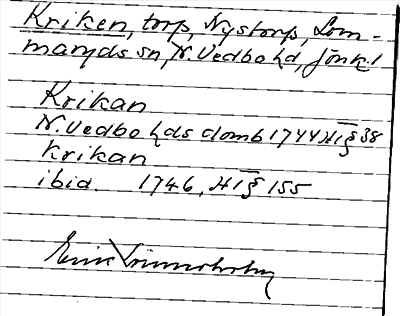 Kriken, torp, Nystorp, Lom-
maryds sn, N. Vedbo hd, Jönk. l
Krikan
N. Vedbo hds domb 1744 HI § 38
Krikan
ibid. 1746, HI § 155
Erik